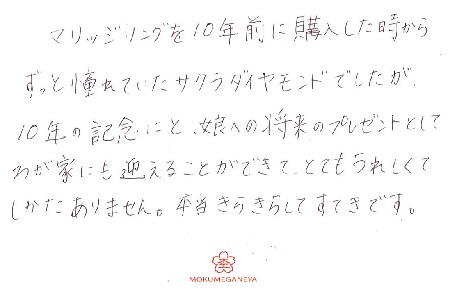 マリッジリングを10年前に購入した時から
ずっと憧れていたサクラダイヤモンドでしたが、
10年の記念にと、娘への将来のプレゼントとして
わが家にも迎えることができて、とてもうれしくて
しかたありません。本当きらきらしてすてきです。
MOKUMEGANEYA